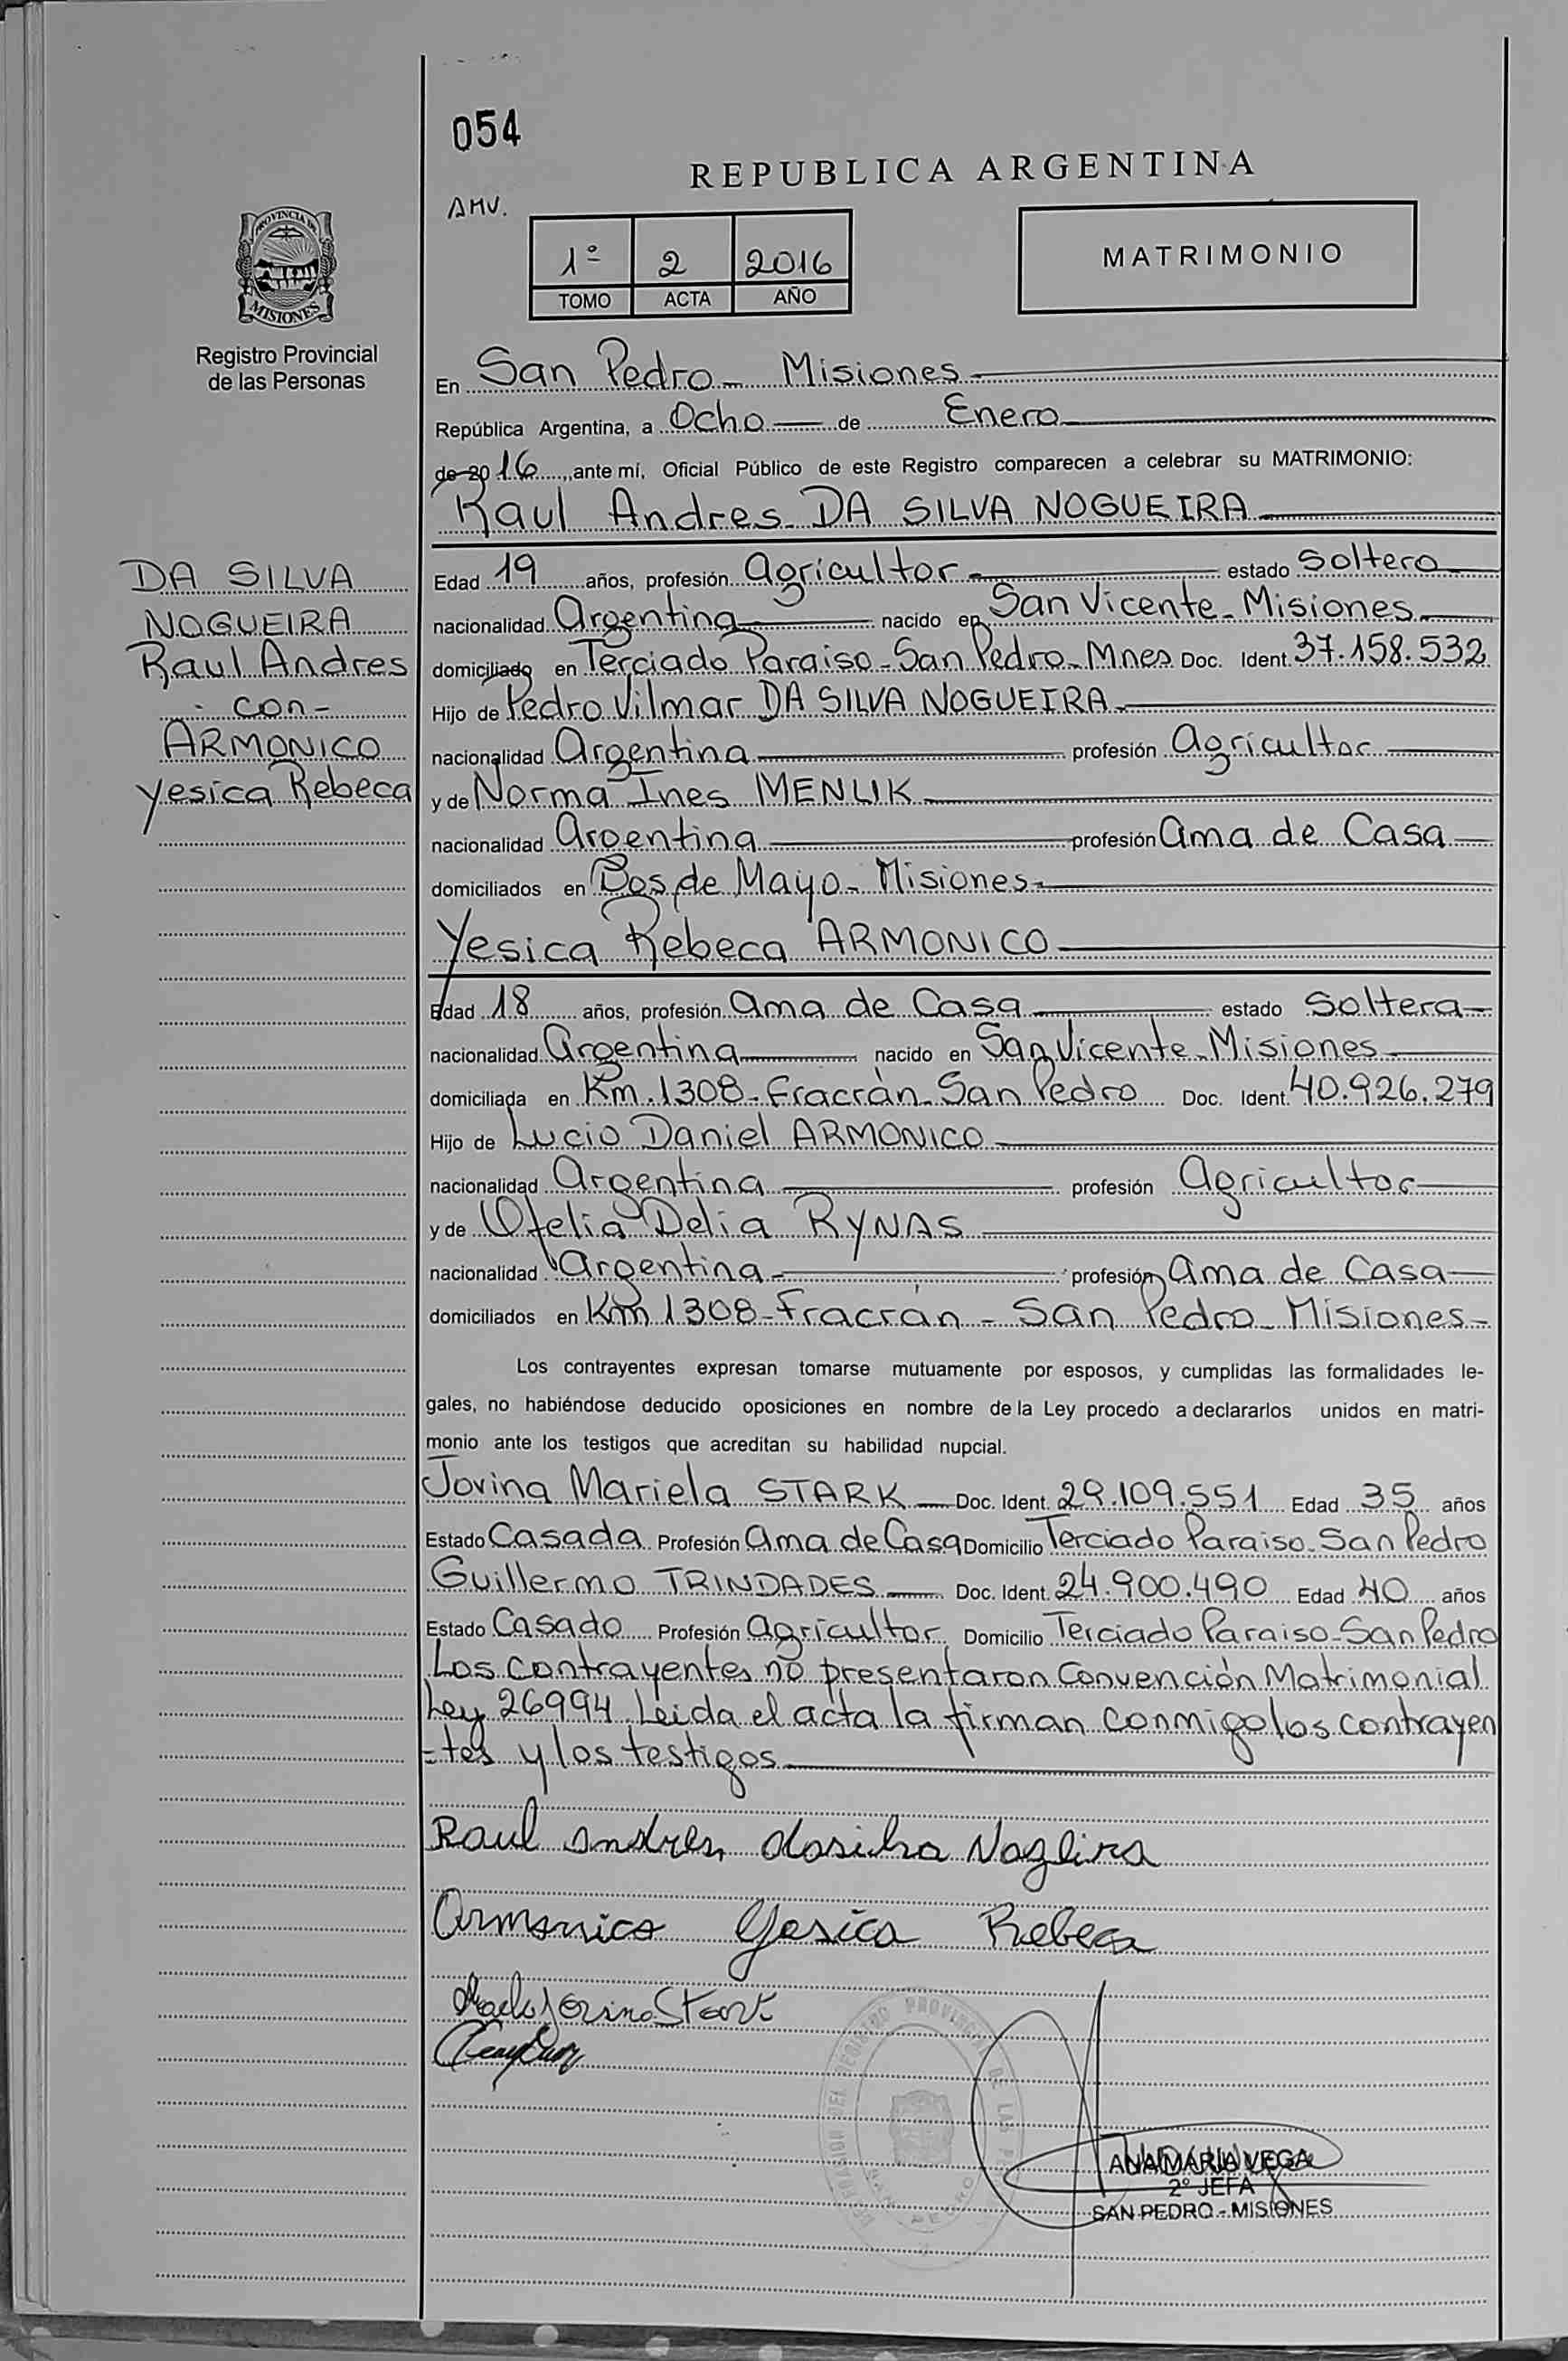 054
REPUBLICA ARGENTINA
AMV.
1º 2 2016
TOMO ACTA AÑO
MATRIMONIO
PROVINCIA DE
MISIONES
Registro Provincial
de las Personas
En San Pedro - Misiones
República Argentina, a Ocho de Enero
de 2016, ante mí, Oficial Público de este Registro comparecen a celebrar su MATRIMONIO:
Raul Andres DA SILVA NOGUEIRA
DA SILVA
NOGUEIRA
Raul Andres
- con -
ARMONICO
Yesica Rebeca
Edad 19 años, profesión Agricultor estado Soltero
nacionalidad Argentina nacido en San Vicente - Misiones
domiciliado en Terciado Paraiso - San Pedro - Mnes Doc. Ident. 37.158.532
Hijo de Pedro Vilmar DA SILVA NOGUEIRA
nacionalidad Argentina profesión Agricultor
y de Norma Ines MENLIK
nacionalidad Argentina profesión Ama de Casa
domiciliados en Dos de Mayo - Misiones
Yesica Rebeca ARMONICO
Edad 18 años, profesión Ama de Casa estado Soltera
nacionalidad Argentina nacido en San Vicente - Misiones
domiciliada en Km. 1308 - Fracrán - San Pedro Doc. Ident. 40.926.279
Hijo de Lucio Daniel ARMONICO
nacionalidad Argentina profesión Agricultor
y de Ofelia Delia RYNAS
nacionalidad Argentina profesión Ama de Casa
domiciliados en Km 1308 - Fracrán - San Pedro - Misiones -
Los contrayentes expresan tomarse mutuamente por esposos, y cumplidas las formalidades le-
gales, no habiéndose deducido oposiciones en nombre de la Ley procedo a declararlos unidos en matri-
monio ante los testigos que acreditan su habilidad nupcial.
Jovina Mariela STARK Doc. Ident. 29.109.551 Edad 35 años
Estado Casada Profesión Ama de Casa Domicilio Terciado Paraiso - San Pedro
Guillermo TRINDADES Doc. Ident. 24.900.490 Edad 40 años
Estado Casado Profesión Agricultor Domicilio Terciado Paraiso - San Pedro
Los contrayentes no presentaron Convención Matrimonial
Ley 26994. Leida el acta la firman conmigo los contrayen
-tes y los testigos
Raul andres dasilva Nogeira
Armonico Yesica Rebeca
Jovina Stark
ANA MARIA VEGA
2º JEFA
SAN PEDRO - MISIONES